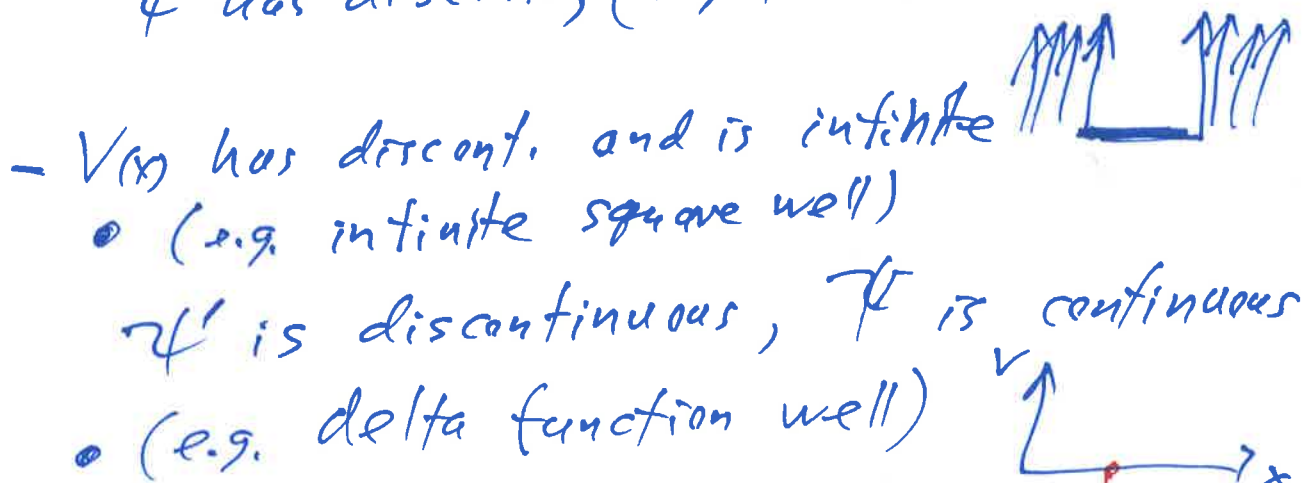 ψ has
- V(x) has discont. and is infinite
• (e.g. infinite square well)
ψ' is discontinuous, ψ is continuous
V
• (e.g. delta function well)
x